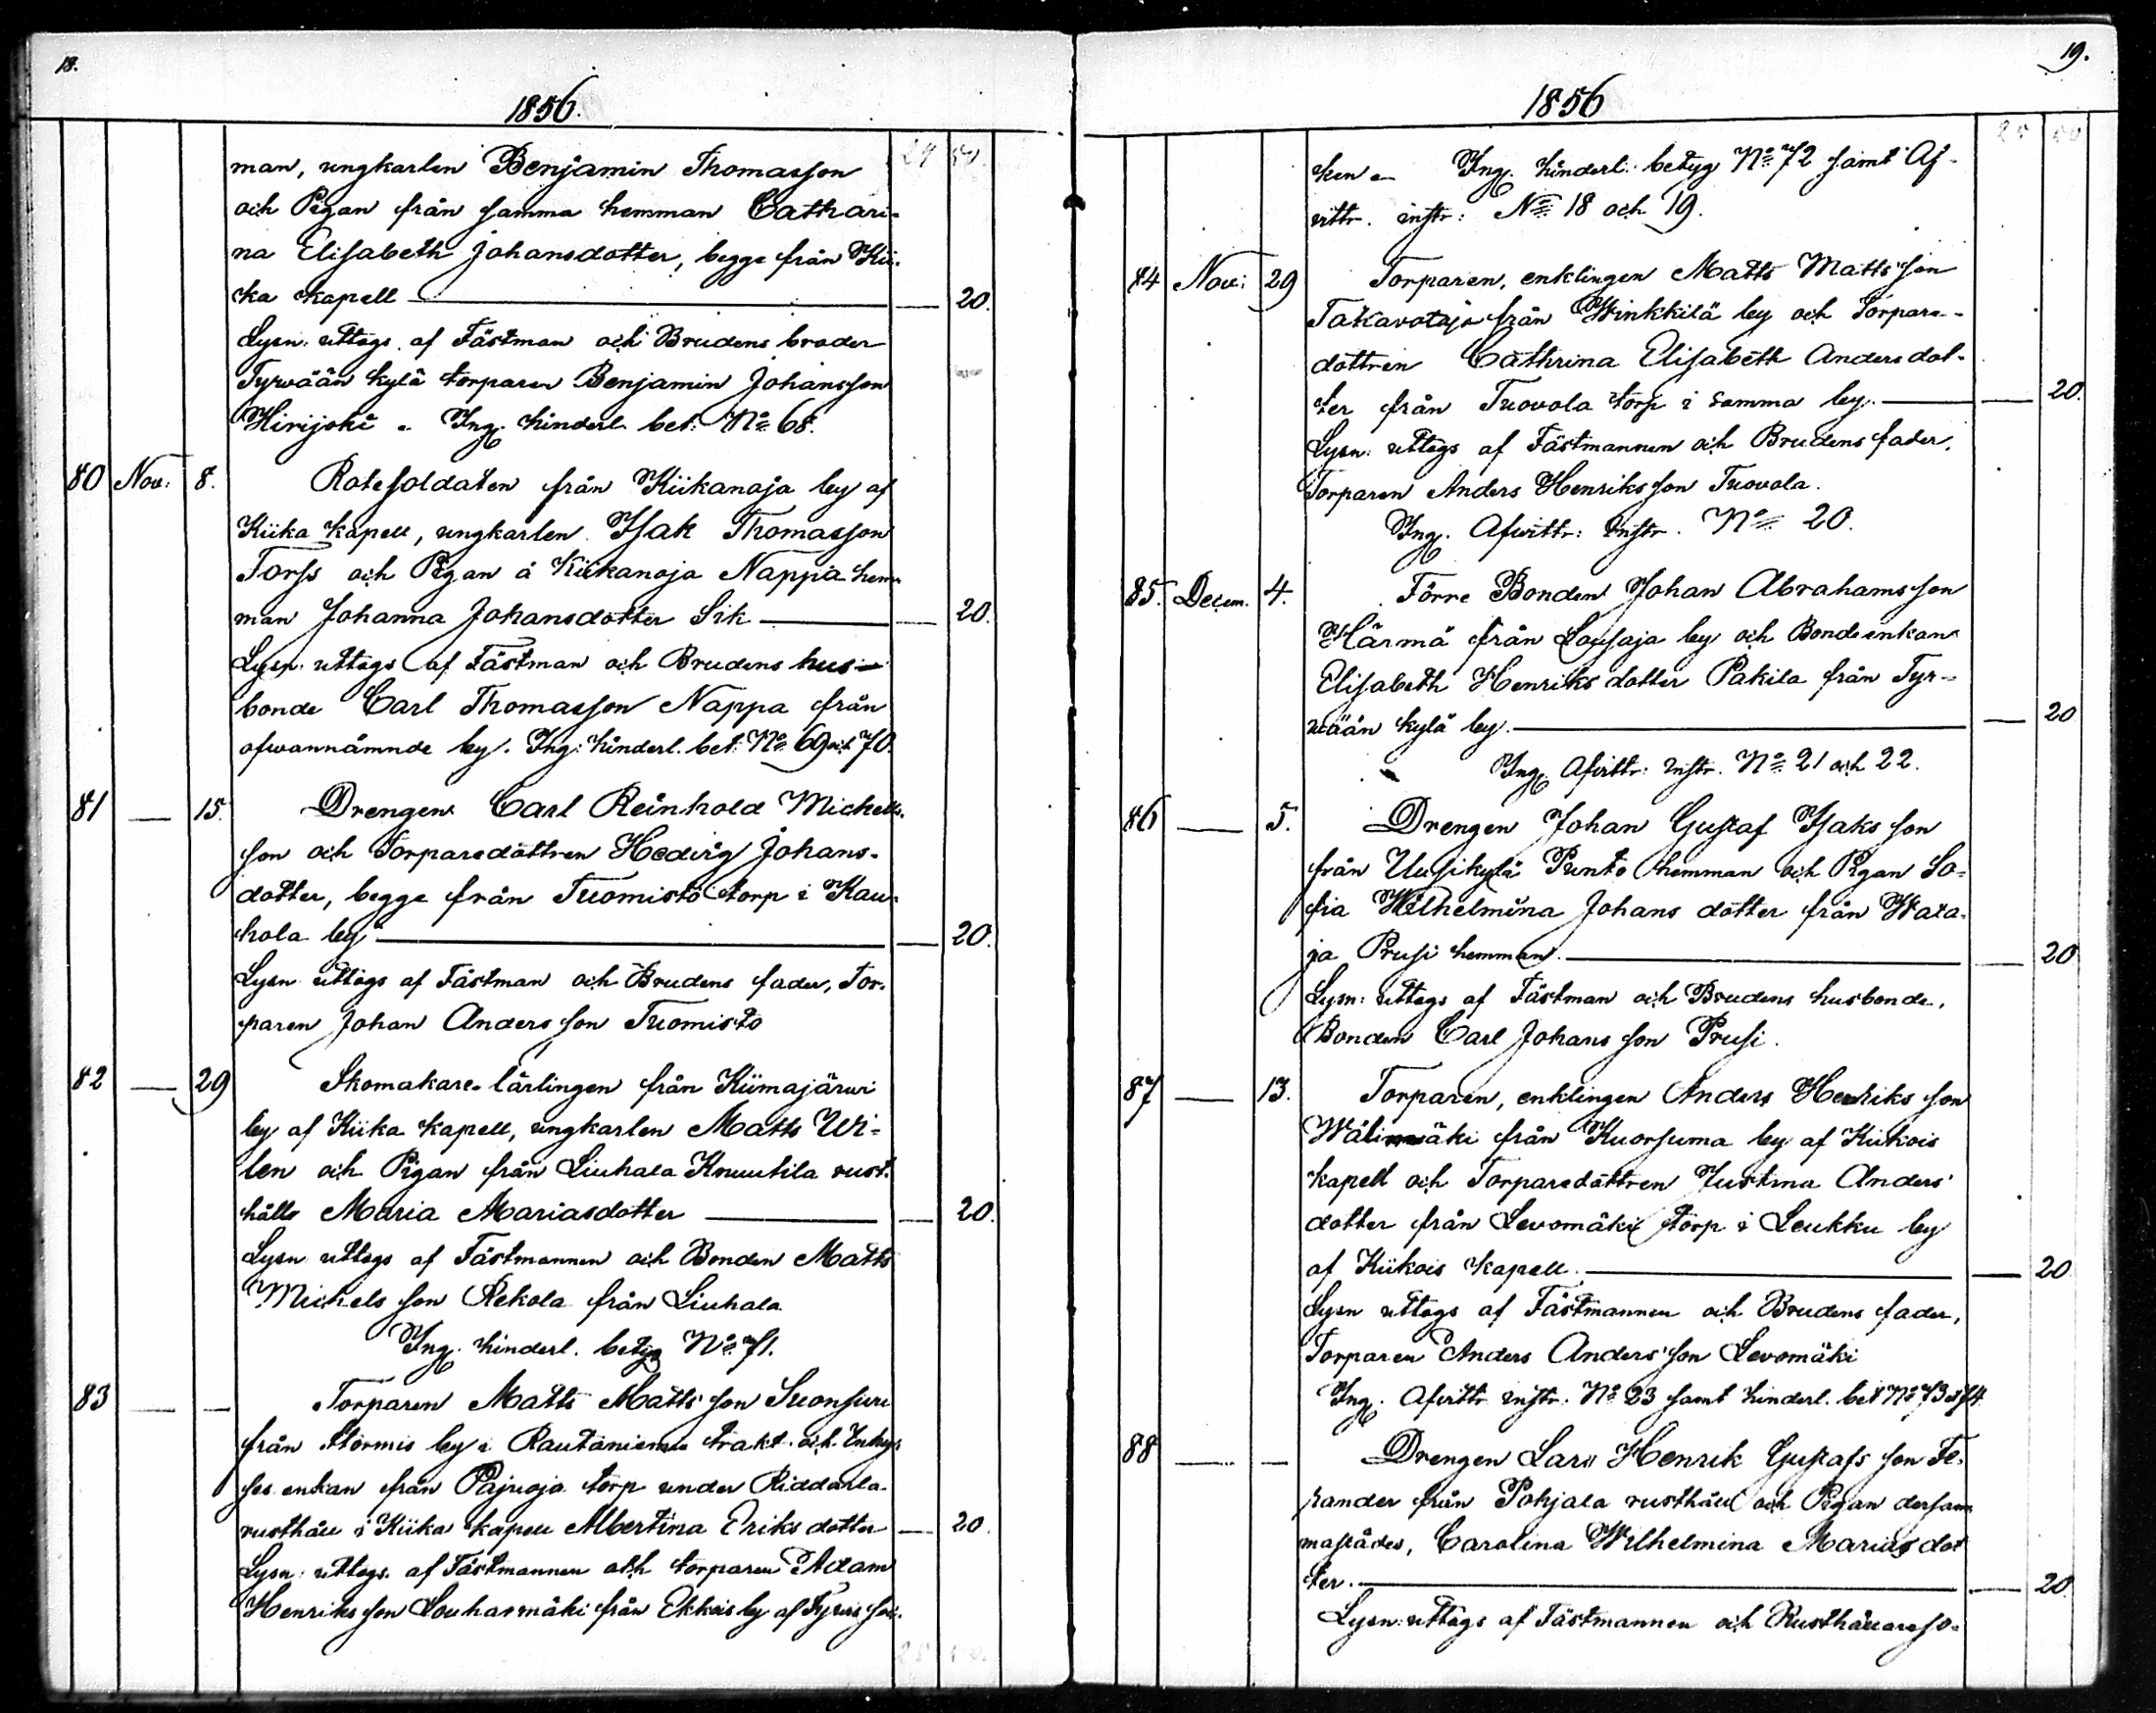 18.
1856.
24 50.
man, ungkarlen Benjamin Thomasson
och Pigan från samma hemman Cathari-
na Elisabeth Johansdotter, begge från Kii-
ka kapell — — 20.
Lysn: uttogs af Fästman och Brudens broder
Tyrvään kylä torparen Benjamin Johansson
Hirijoki. Ing. hinderl. bet: No 68.
80 Nov: 8. Rotesoldaten från Kiikanoja by af
Kiika kapell, ungkarlen Isak Thomasson
Torss och Pigan å Kiikanoja Nappa hem-
man Johanna Johansdotter Sik — — 20.
Lysn: uttogs af Fästman och Brudens hus-
bonde Carl Thomasson Nappa från
ofvannämnde by. Ing: hinderl. bet: No 69 och 70.
81 — 15. Drengen Carl Reinhold Michels-
son och Torparedottren Hedvig Johans-
dotter, begge från Tuomisto torp i Kau-
kola by — — 20.
Lysn uttogs af Fästman och Brudens fader, Tor-
paren Johan Andersson Tuomisto
82 — 29 Skomakare-lärlingen från Kiimajärwi
by af Kiika kapell, ungkarlen Matts Wi-
len och Pigan från Liuhala Knuutila rust-
hålls Maria Mariasdotter — — 20.
Lysn uttogs af Fästmannen och Bonden Matts
Michelsson Rekola från Liuhala
Ing. hinderl. betyg No 71.
83 — — Torparen Matts Mattsson Suonsuu
från Stormis by i Rautaniemi trakt och Inhys-
ses enkan från Pajuoja torp under Riddarla
rusthåll i Kiika kapell Albertina Eriksdotter — 20.
Lysn: uttogs af Fästmannen och torparen Adam
Henriksson Louhasmäki från Ekkois by af
19.
1856
25 50
ken. Ing. hinderl. betyg No 72 samt Af-
vittr. instr: No 18 och 19.
84 Nov: 29 Torparen, enklingen Matts Mattsson
Takavotajo från Winkkilä by och Torpare-
dottren Cathrina Elisabeth Andersdot-
ter från Tuovola torp i samma by. — — 20.
Lysn: uttogs af Fästmannen och Brudens fader,
Torparen Anders Henriksson Tuovola.
Ing. Afvittr: Instr. No 20.
85. Decem. 4. Förre Bonden Johan Abrahamsson
Härmä från Lousaja by och Bondeenkan
Elisabeth Henriksdotter Pakila från Tyr-
wään kylä by. — — 20
Ing. Afvittr: instr. No 21 och 22.
86 — 5. Drengen Johan Gustaf Isaksson
från Uusikylä Punto hemman och Pigan So-
fia Wilhelmina Johansdotter från Wata-
ja Prusi hemman. — — 20
Lysn: uttogs af Fästman och Brudens husbonde,
Bonden Carl Johansson Prusi.
87 — 13. Torparen, enklingen Anders Henriksson
Wälimäki från Kuorsuma by af Kiikois
kapell och Torparedottren Justina Anders-
dotter från Levomäki torp i Leukku by
af Kiikois kapell. — — 20
Lysn uttogs af Fästmannen och Brudens fader,
Torparen Anders Andersson Levomäki
Ing. Afvittr instr. No 23 samt hinderl. bet No 73 o 74
88 — — Drengen Lars Henrik Gustafsson Fe-
rander från Pohjala rusthåll och Pigan dersam-
mastädes, Carolina Wilhelmina Mariasdot
ter. — — 20.
Lysn: uttogs af Fästmannen och Rusthållareso-